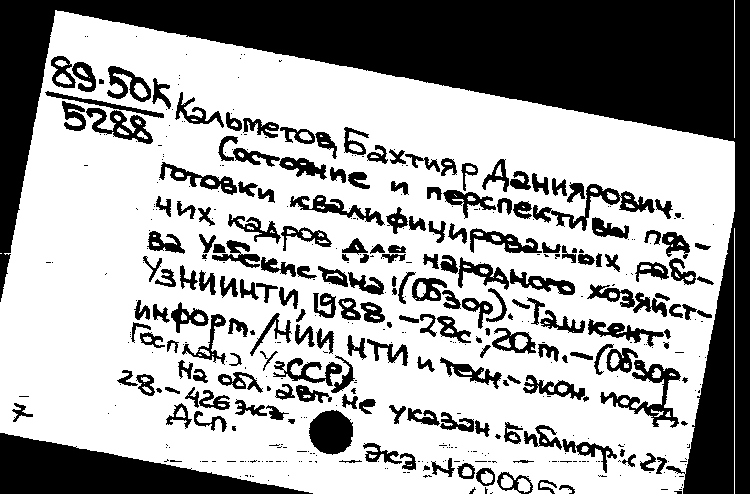 89-50К
5288
Кальметов, Бахтияр Даниярович.
Состояние и перспективы под-
готовки квалифицированных рабо-
чих кадров для народного хозяйст-
ва Узбекистана: (Обзор).-Ташкент:
УзНИИНТИ, 1988.-28с.; 20см.-(Обзор.
информ./НИИ НТИ и техн.-экон. исслед.
Госплана УзССР).
На обл. авт. не указан. Библиогр.: с. 27-
28.-426 экз.
ДСП.
7
Экз. N000052